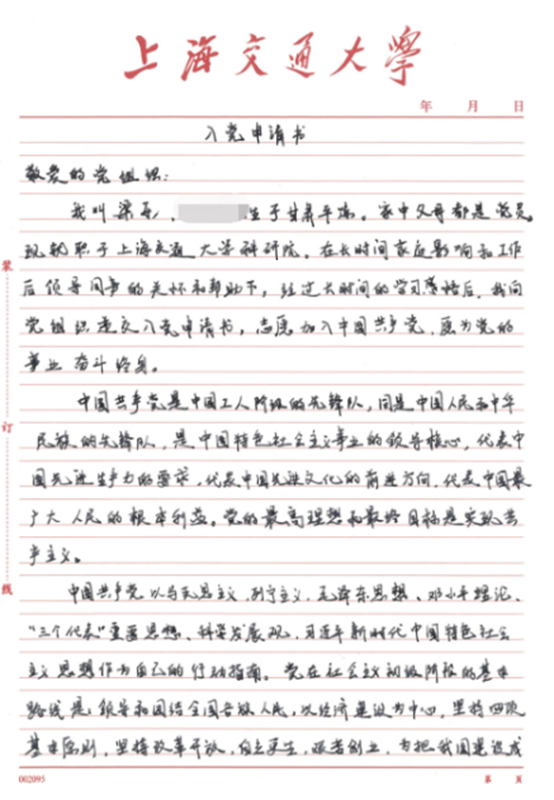 上海交通大学
年 月 日
入党申请书
敬爱的党组织：
我叫梁 ，生于甘肃平凉。家中父母都是党员，
现就职于上海交通大学科研院。在长时间家庭影响和工作
后领导同事的关怀和帮助下，经过长时间的学习感悟后，我向
党组织递交入党申请书，志愿加入中国共产党，愿为党的
事业奋斗终身。
中国共产党是中国工人阶级的先锋队，同是中国人民和中华
民族的先锋队，是中国特色社会主义事业的领导核心，代表中
国先进生产力的要求，代表中国先进文化的前进方向，代表中国最
广大人民的根本利益。党的最高理想和最终目标是实现共
产主义。
中国共产党以马克思主义、列宁主义、毛泽东思想、邓小平理论、
“三个代表”重要思想、科学发展观、习近平新时代中国特色社会
主义思想作为自己的行动指南。党在社会主义初级阶段的基本
路线是领导和团结全国各族人民，以经济建设为中心，坚持四项
基本原则，坚持改革开放，自力更生，艰苦创业，为把我国建设成
装
订
线
002095
第 页